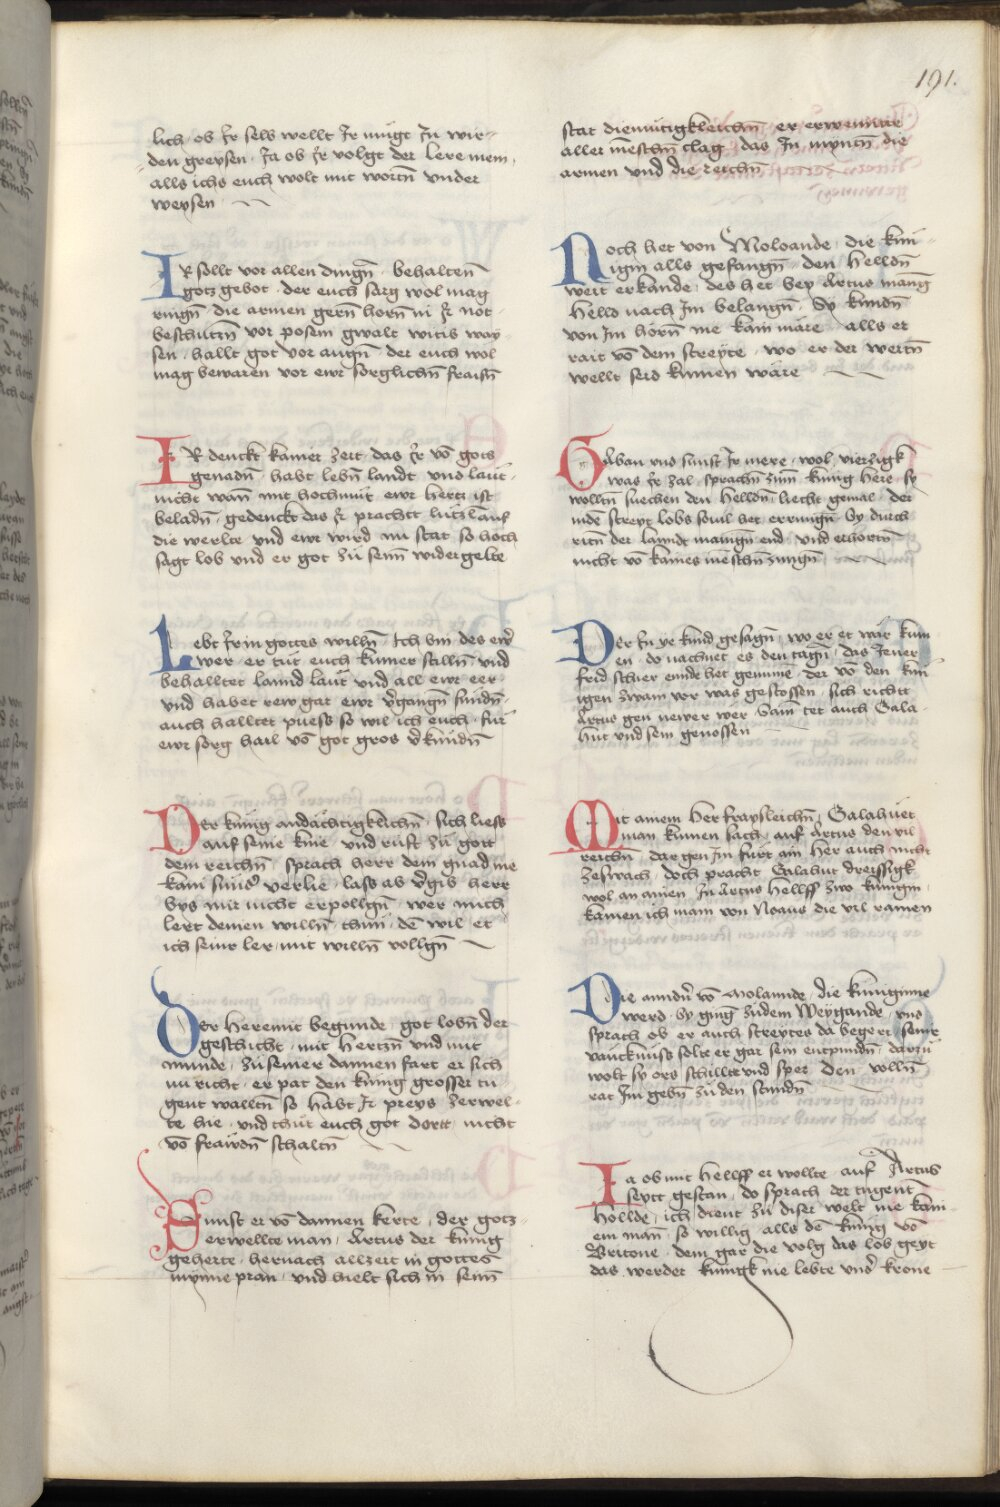 191.
lich · ob Ir sels wellt Ir mügt In wir-
den greysen · Ja ob Ir volgt der lere mein ·
alls ichs euch wolt mit wortn̄ vnder
weysen
IR sollt vor allen dingn̄ · behalten
gotz gebot · der euch sarg wol mag
ringn̄ · die armen gern horn̄ in Ir not ·
beschutzn̄ vor posem gwalt witib way-
sen · hallt got vor augn̄ · der euch wol
mag bewaren vor ewr sorglichn̄ fraisn̄
IR denckt kamer zeit · das Ir vō gots
genadn̄ · habt lebn̄ landt vnd laut ·
nicht wan̄ mit hochmut ewr hertz ist
beladn̄ · gedenckt das Ir prachtt lützl auf
die werlte vnd ewr wird nu stat so hoch
sagt lob vnd er got zu sein̄ widergelte
Lebt Ir in gottes willn̄ · Ich bin des ew̄r
wer · er tüt euch kumer stilln̄ vnd
behalltet lannd laut vnd all ewr eer ·
vnd habet rew gar ewr v̄gangn̄ sundn̄ ·
auch halltet puess so wil ich euch · fur
ewr sorg hail vō got gros v̄kündn̄
Der künig andächtigklichn̄ · sich liess
auf seine knie · vnd rüft zu gott
dem reichn̄ sprach herr dein gnad nie
kain sund̄ verlie · lass ab v̄gib herr
bys mir nicht erpollgn̄ · wer mich
lert deinen willn̄ thun · dē wil et
ich seinr ler mit willn̄ vollgn̄
Der Heremit begunde · got lobn̄ der
geschicht · mit hertzn̄ vnd mit
munde · zu seiner dannen fart er sich
nu richt · er pat den künig grosser tu-
gent walltn̄ so habt Ir preys zerwel-
te hie · vnd thüt euch got dortt · nicht
vō frawdn̄ schaltn̄
Sunst er vō dannen kerte · der gotz-
erwellte man · Artus der künig
geherte · hernach allzeit in gottes
mynne pran · vnd hielt sich in sein̄
stat diemütigkleichn̄ · er erwennte
aller menschn̄ clag · das In mynten die
armen vnd die reichn̄
Noch het von Moloande · die kün-
igin alls gefangn̄ · den Helldn̄
weit erkande · des het bey Artus mang
Helld nach Im belangn̄ · Sy kundn̄
von Im horn̄ nie kain märe · alls er
rait vō dem streyte · wo er der wertn̄
wellt seid kumen wäre
Gaban vnd sunst Ir mere · wol vierzigk
was Ir zal · sprachn̄ zum künig here · sy
wolltn̄ suechen den Helldn̄ · liecht gemal · der
indē streyt lobs souil het errungn̄ · sy durch
ritn̄ der lannde maingn̄ end · vnd erhortn̄
nicht vō kaines menschn̄ zungn̄
Der In ye kund gesagn̄ · wo er et wär kum
en · do nachnet es den tagn̄ · das Jener
frid schier ennde het genumē · der vō den kün
igen zwain vor was gestossen · sich richtt
Artus gen newer wer · Sam tet auch Gala-
hut vnd sein genossen
Mit ainem Her frayslichn̄ · Galahuet
man kumen sach · auf Artus den vil
reichn̄ · dargen Im fürt ain her auch nicht
zeswach · doch pracht Galahut dreissigk
wol an ainen · In Artus hellff zwo künigin
kamen · ich main von Noaus die vil rainen
Die anndr̄ vō Molannde · die küniginne
werd · sy ging zudem Weygande · vnd
sprach ob er auch streytes da beger et · seinr
vancknuss solte er gar sein entpundn̄ · darzu
wolt sy ors schillt vnd sper den volln̄
rat Im gebn̄ zu den stundn̄
Ia ob mit hellff er wollte · auf Artus
seytt gestan · do sprach der tugent
hollde · ich dient zu diser welt nie kain-
em man · so willig · alls dē künig vō
Britone · dem gar die volg das lob geyt
das werder künigk nie lebte vnd̄ krone